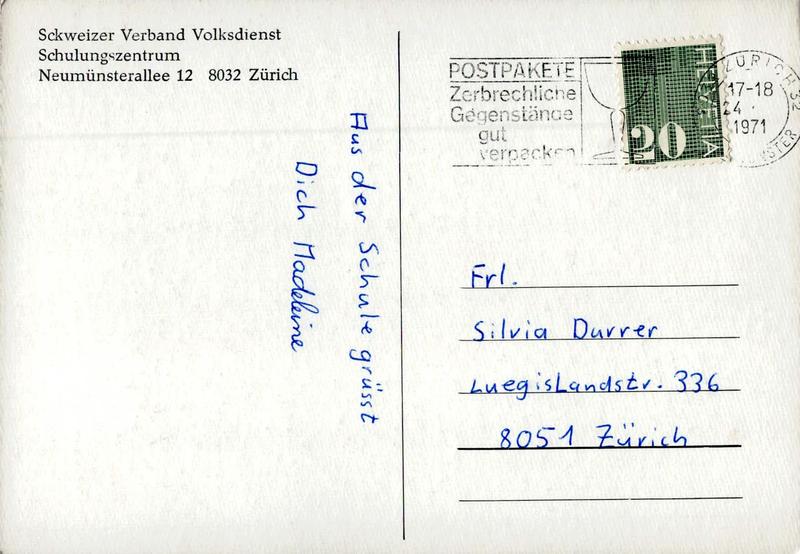 Sckweizer Verband Volksdienst
Schulungszentrum
Neumünsterallee 12 8032 Zürich
Aus der Schule grüsst
Dich Madeleine
POSTPAKETE
Zerbrechliche
Gegenstände
gut
verpacken
HELVETIA
20
ZÜRICH 32
17-18
24.
1971
Frl.
Silvia Durrer
Luegislandstr. 336
8051 Zürich